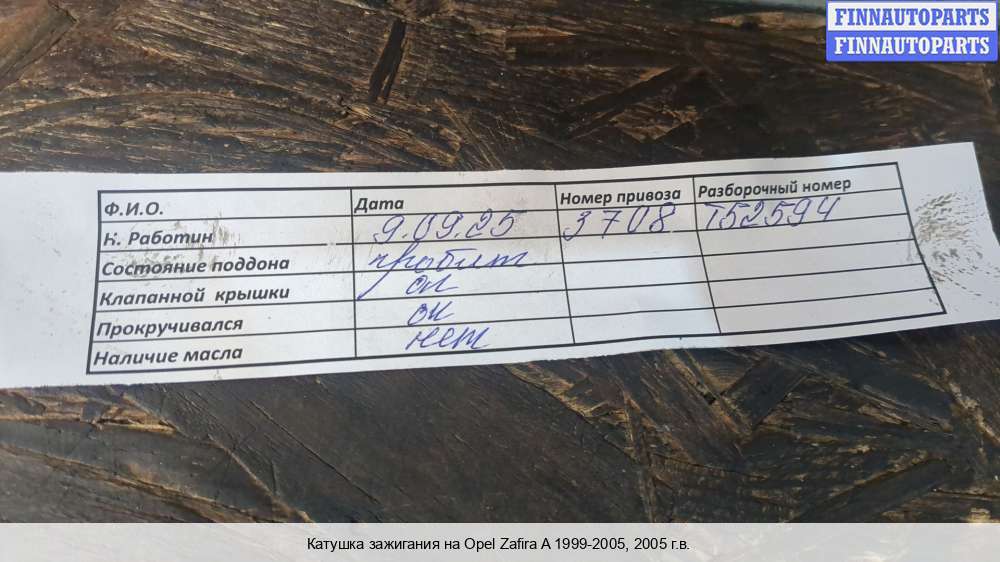 FINNAUTOPARTS
FINNAUTOPARTS
Ф.И.О. Дата Номер привоза Разборочный номер
Н. Работин 9.09.25 3708 T52594
Состояние поддона пробит
Клапанной крышки ок
Прокручивался ок
Наличие масла нет
Катушка зажигания на Opel Zafira A 1999-2005, 2005 г.в.